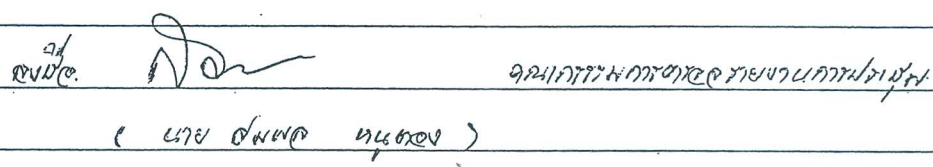 ลงชื่อ. คณะกรรมการตรวจรายงานการประชุม.
( นาย สมพล หนูทอง )